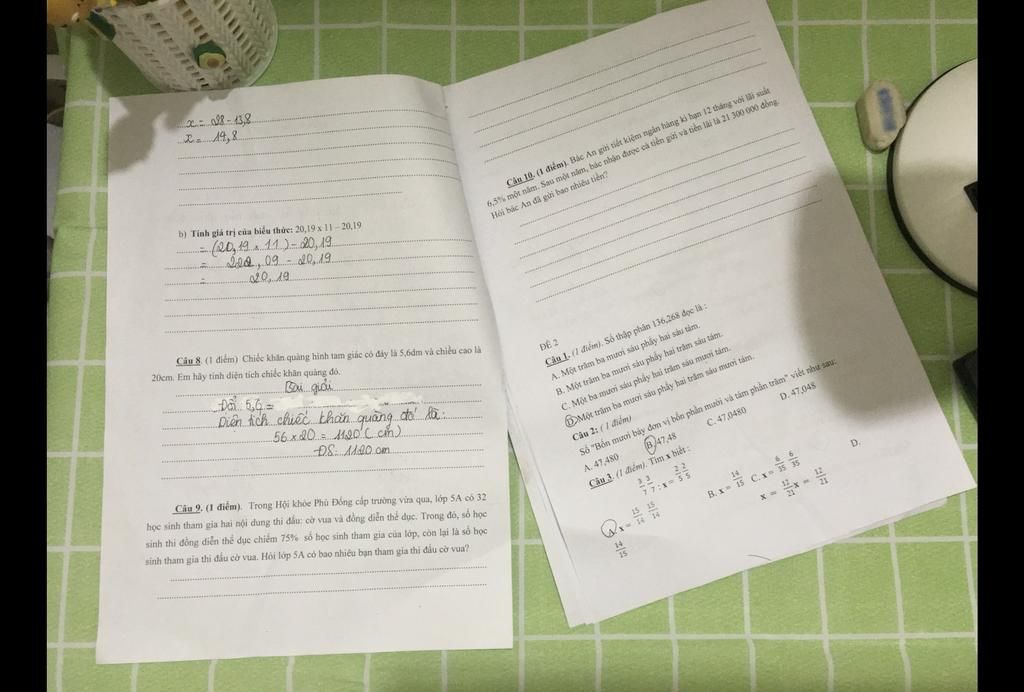 x = 28 - 13,8
x = 14,8
b) Tính giá trị của biểu thức: 20,19 x 11 – 20,19
= (20,19 x 11) - 20,19
= 222,09 - 20,19
= 20,19
Câu 8. (1 điểm) Chiếc khăn quàng hình tam giác có đáy là 5,6dm và chiều cao là
20cm. Em hãy tính diện tích chiếc khăn quàng đó.
Bài giải
Đổi 5,6 =
Diện tích chiếc khăn quàng đó là:
56 x 20 = 1120 (cm)
ĐS: 1120 cm
Câu 9. (1 điểm). Trong Hội khỏe Phù Đổng cấp trường vừa qua, lớp 5A có 32
học sinh tham gia hai nội dung thi đấu: cờ vua và đồng diễn thể dục. Trong đó, số học
sinh thi đồng diễn thể dục chiếm 75% số học sinh tham gia của lớp, còn lại là số học
sinh tham gia thi đấu cờ vua. Hỏi lớp 5A có bao nhiêu bạn tham gia thi đấu cờ vua?
Câu 10. (1 điểm). Bác An gửi tiết kiệm ngân hàng kì hạn 12 tháng với lãi suất
6,5% một năm. Sau một năm, bác nhận được cả tiền gửi và tiền lãi là 21 300 000 đồng.
Hỏi bác An đã gửi bao nhiêu tiền?
ĐỀ 2
Câu 1. (1 điểm). Số thập phân 136,268 đọc là :
A. Một trăm ba mươi sáu phẩy hai sáu tám.
B. Một trăm ba mươi sáu phẩy hai trăm sáu tám.
C. Một ba mươi sáu phẩy hai trăm sáu mươi tám.
D. Một trăm ba mươi sáu phẩy hai trăm sáu mươi tám.
Câu 2: (1 điểm)
Số "Bốn mươi bảy đơn vị bốn phần mười và tám phần trăm" viết như sau:
A. 47,480 B. 47,48 C. 47,0480 D. 47,048
Câu 3. (1 điểm). Tìm x biết :
3/7 3/7 : x = 2/5 2/5
A. x = 15/14 15/14 B. x = 14/15 C. x = 6/35 6/35 D.
14/15 x = 12/21 x = 12/21